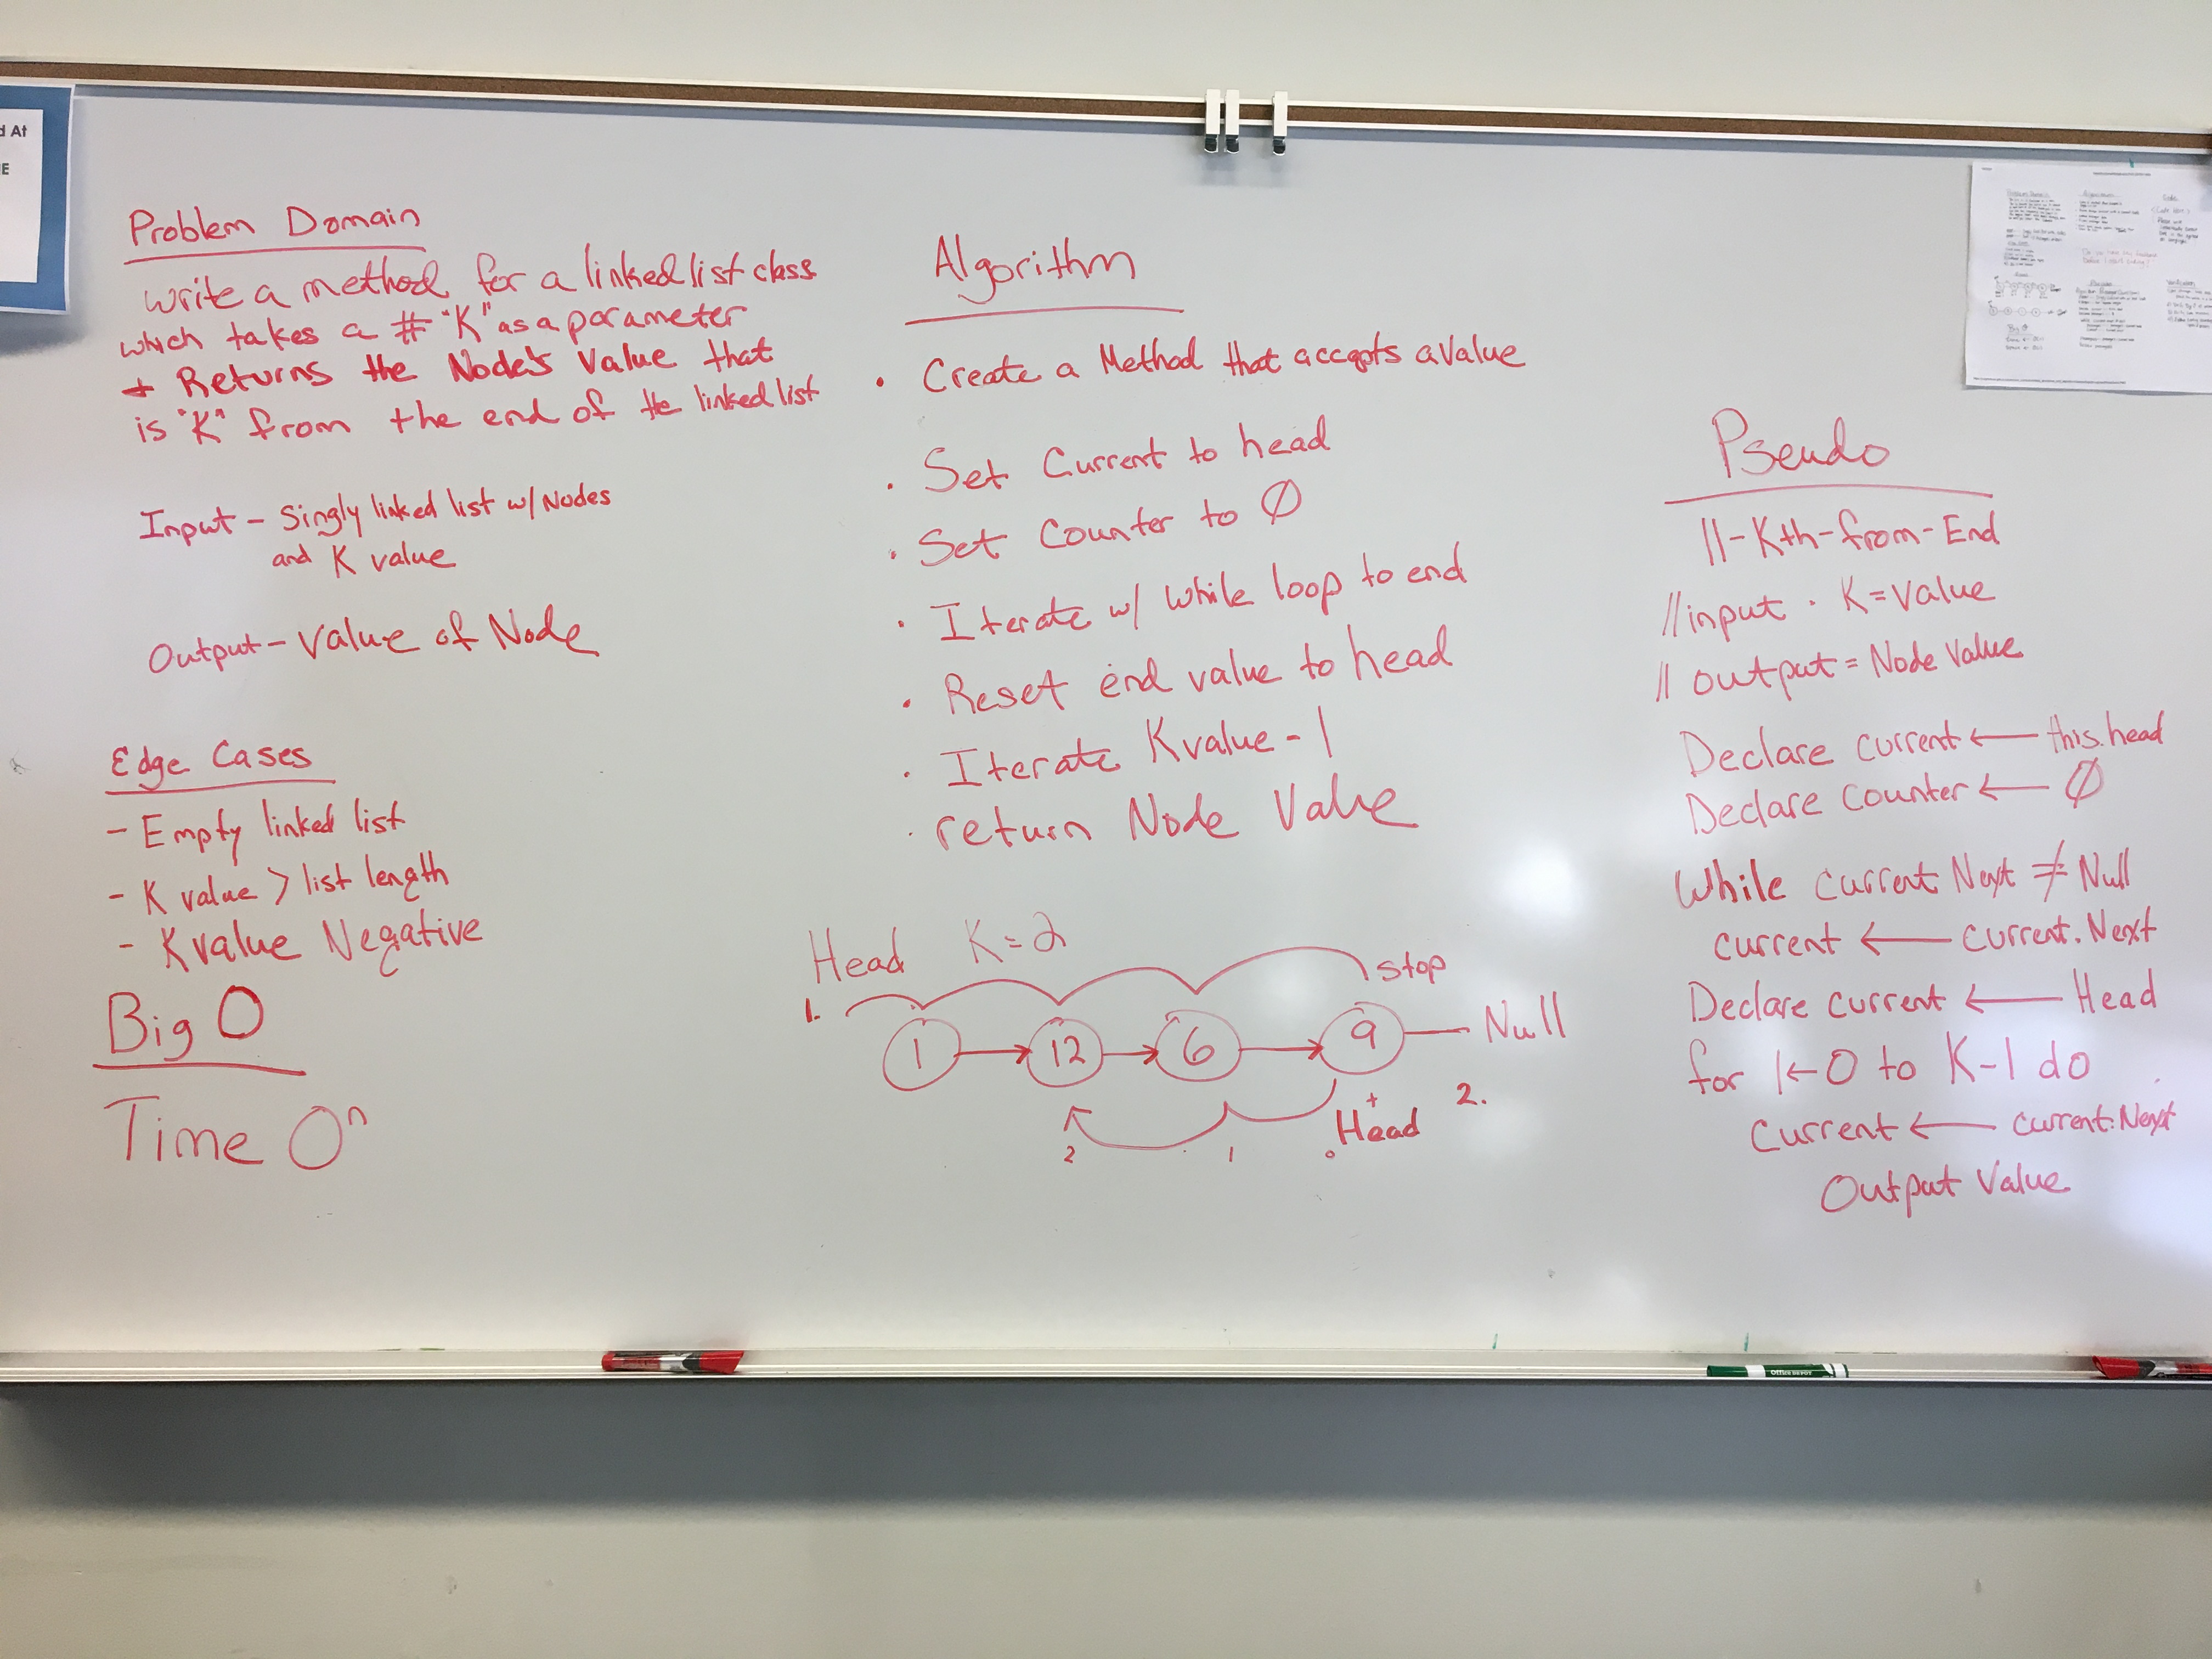 d At
E
Problem Domain
Write a method for a linked list class
which takes a # "K" as a parameter
+ Returns the Node's Value that
is "K" from the end of the linked list
Input - Singly linked list w/ Nodes
and K value
Output - Value of Node
Edge Cases
- Empty linked list
- K value > list length
- K value Negative
Big O
Time Oⁿ
Algorithm
· Create a Method that accepts a value
· Set Current to head
· Set Counter to Ø
· Iterate w/ While loop to end
· Reset end value to head
· Iterate K value - 1
· return Node Value
Head K=2
1. stop
1 12 6 9 Null
2 1 0 Head 2.
Pseudo
//-Kth-from-End
//input · K=Value
// output = Node Value
Declare current ← this.head
Declare Counter ← Ø
While current Next ≠ Null
current ← current.Next
Declare current ← Head
for 1←0 to K-1 do
Current ← current.Next
Output Value
Office DEPOT